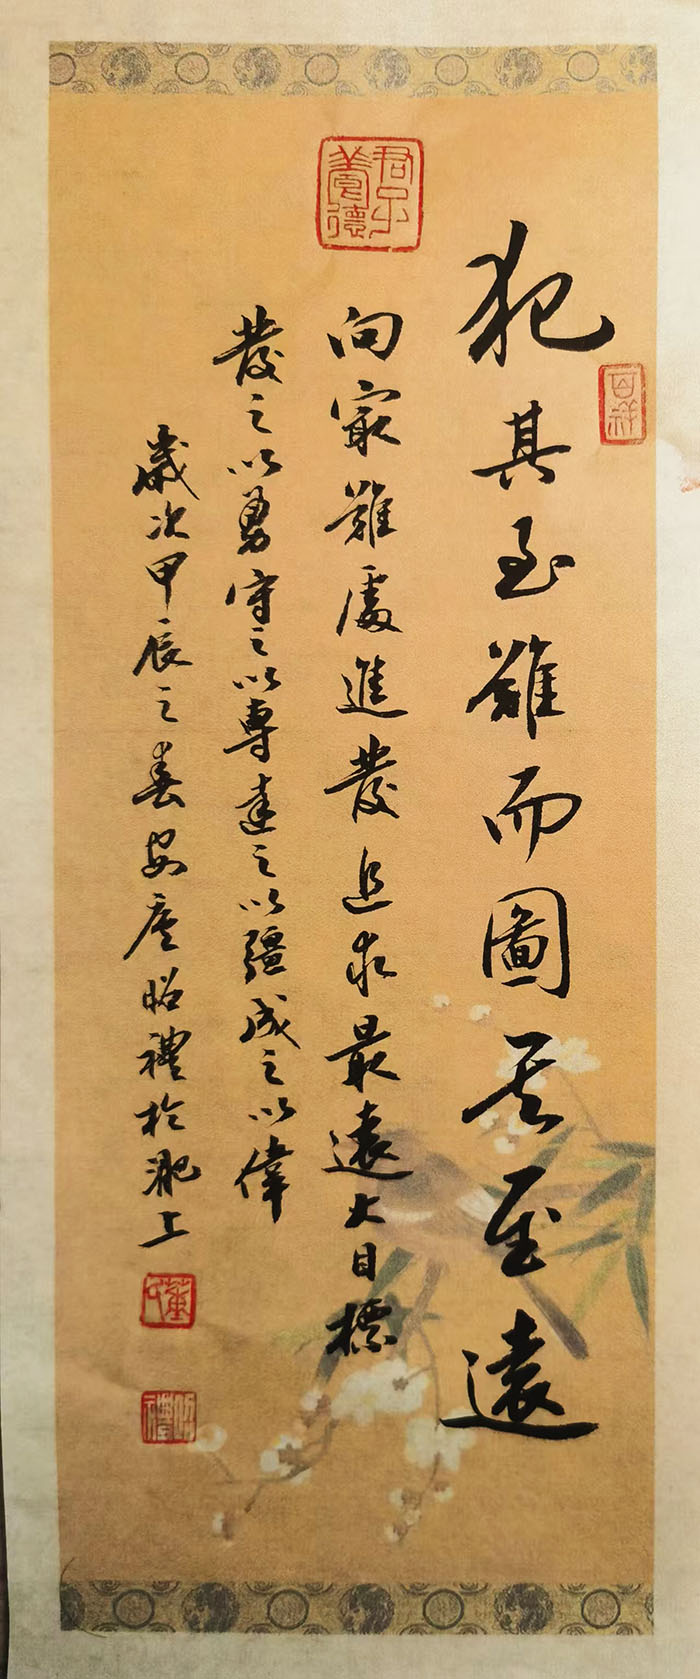 犯其至難而圖其至遠
向最難處進發追求最遠大目標
發之以勇守之以專達之以彊成之以偉
歲次甲辰之春安虎昭禮於淝上
君子養德
吉祥
董氏
昭禮